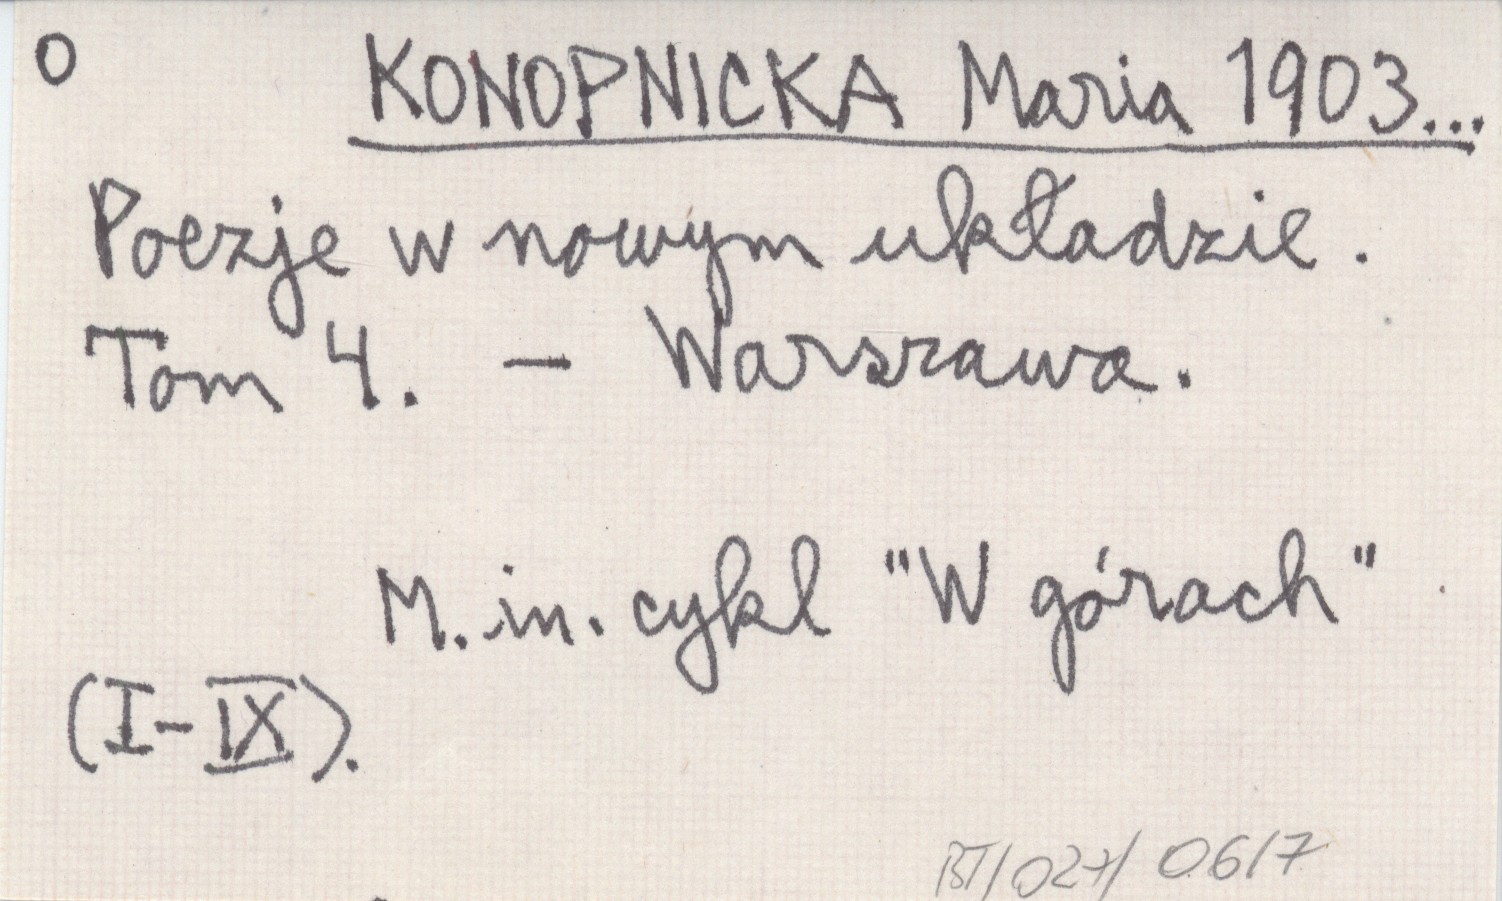 O KONOPNICKA Maria 1903...
Poezje w nowym układzie.
Tom 4. – Warszawa.
M. in. cykl "W górach"
(I-IX).
BT/027/0617